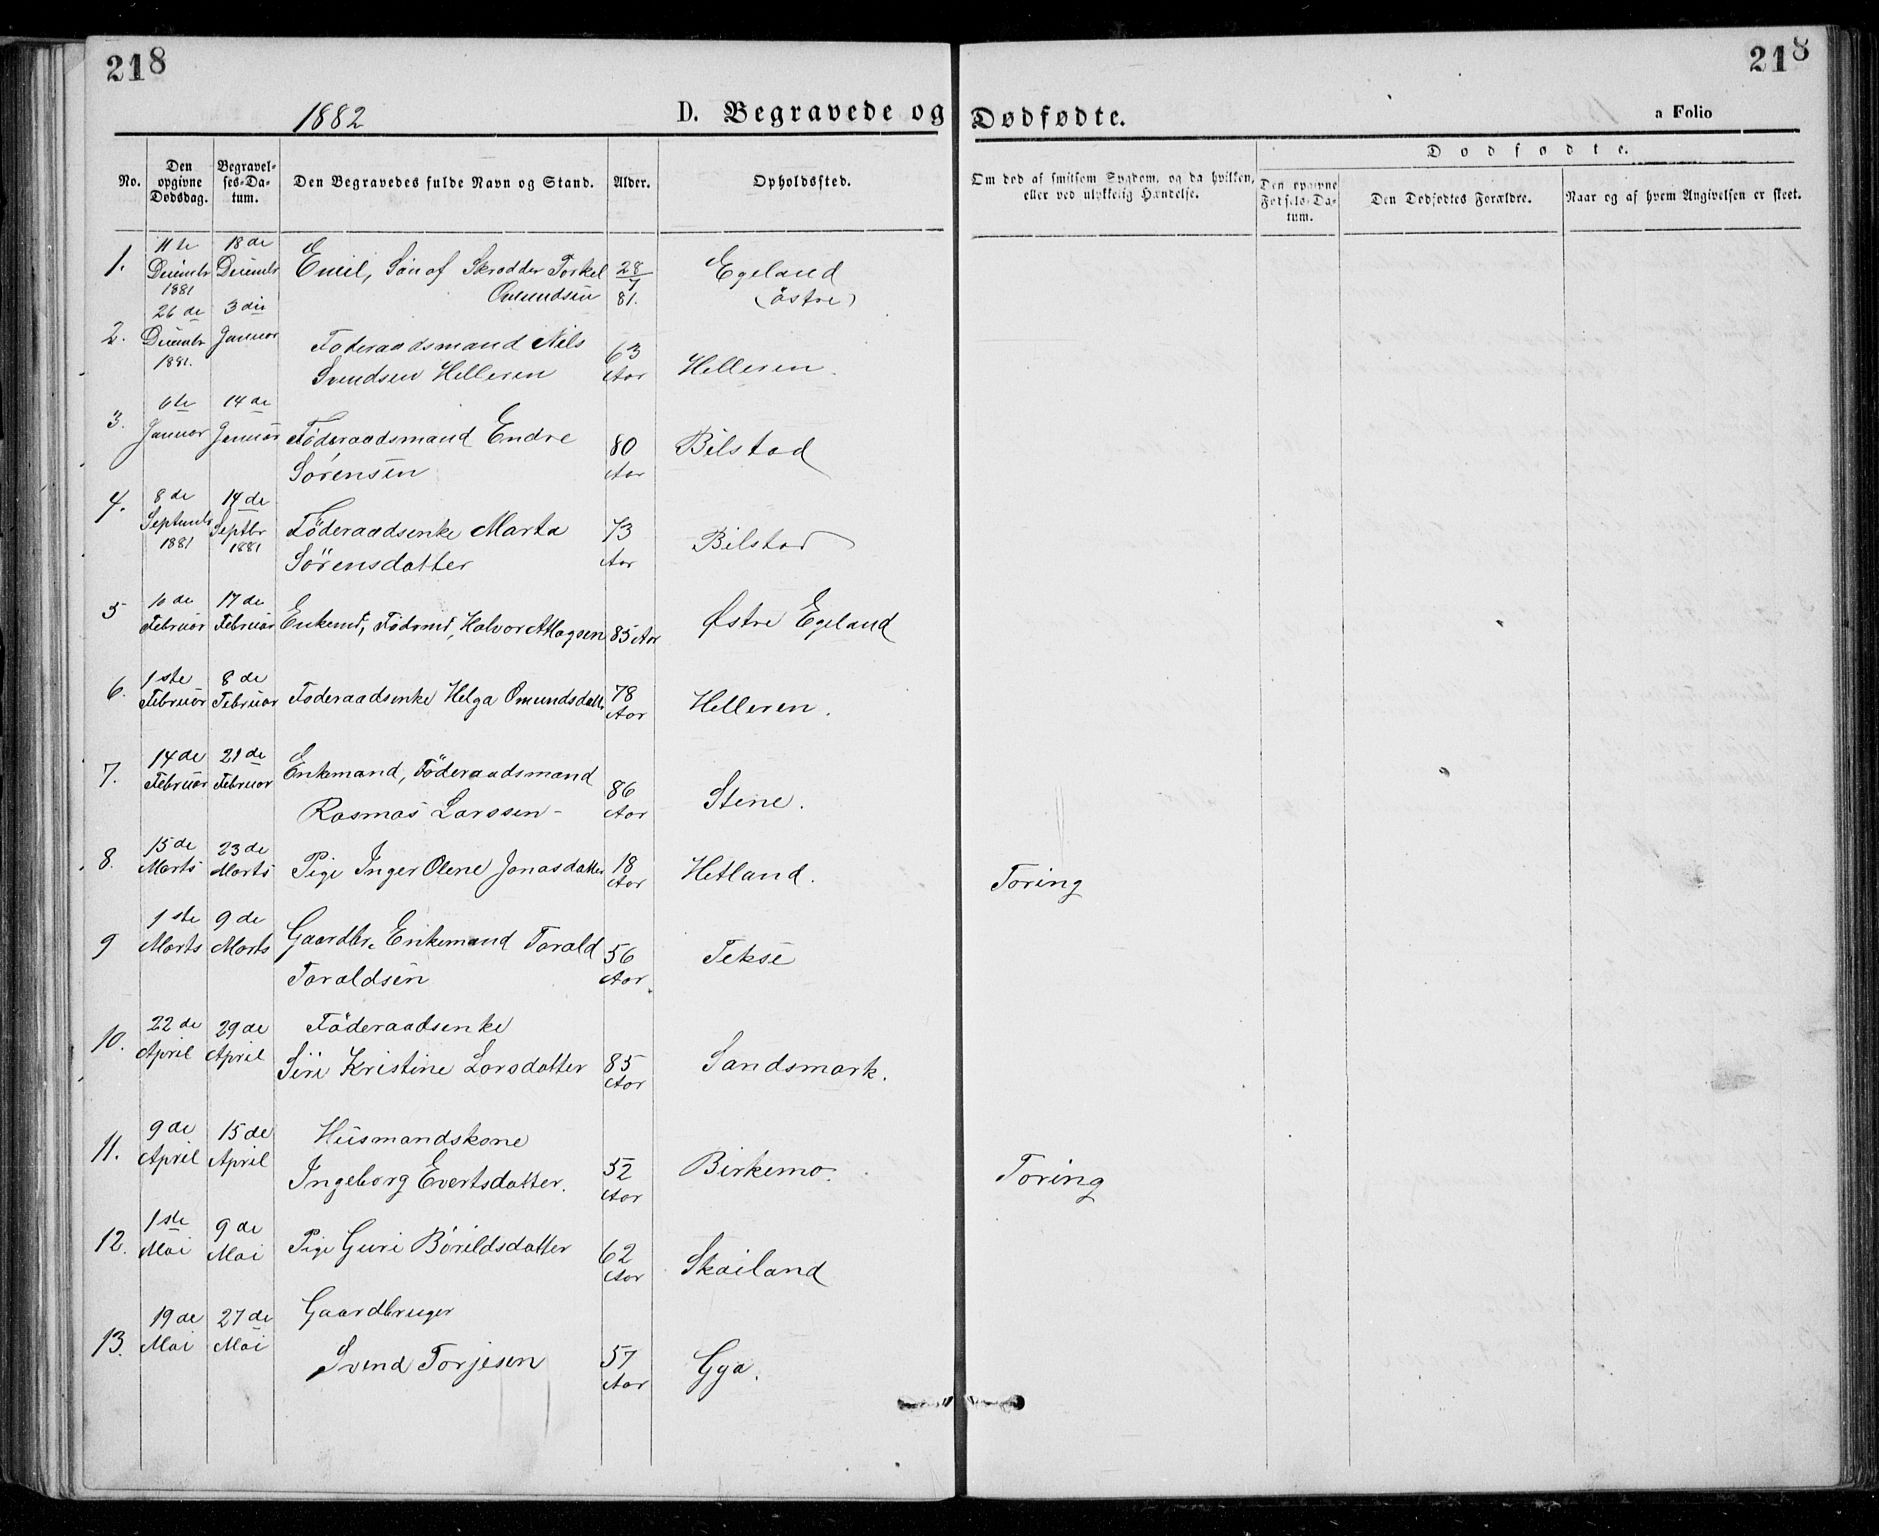 218
218
1882
D. Begravede og Dødfødte.
a Folio
No.
Den opgivne Dødsdag.
Begravelses-Datum.
Den Begravedes fulde Navn og Stand.
Alder.
Opholdssted.
Om død af smitsom Sygdom, og da hvilken, eller ved ulykkelig Hændelse.
Dødfødte.
Den opgivne Fødsels-Datum.
Den Dødfødtes Forældre.
Naar og af hvem Angivelsen er skeet.
1. 11te Decembr 1881 18de Decembr Emil, Søn af Skrædder Torkel Omundsen 28/7 81. Egeland (østre)
2. 26de Decembr 1881. 3die Januar Föderaadsmand Nils Svendsen Helleren 63 Aar Helleren.
3. 6te Januar 14de Januar Föderaadsmand Endre Sörensen 80 Aar Bilstad
4. 8de Septembr 1881 14de Septbr 1881 Föderaadsenke Marta Sörensdatter 73 Aar Bilstad
5 10de Februar 17de Februar Enkemd, Födrmd, Halvor Aslagsen 85 Aar Østre Egeland
6. 1ste Februar 8de Februar Föderaadsenke Helga Omundsdattr 78 Aar Helleren.
7. 14de Februar 21de Februar Enkmand, Föderaadsmand Rasmas Larssen - 86 Aar Stene.
8. 15de Marts 23de Marts Pige Inger Olene Jonasdatter 18 Aar Hetland. Toring
9 1ste Marts 9de Marts Gaardbr. Enkemand Torald Toraldsen 56 Aar. Tekse
10. 22de April 29de April Föderaadsenke Siri Kristine Larsdatter 85 Aar Sandsmark.
11. 9de April 15de April Husmandskone Ingeborg Evertsdatter. 52 Aar Birkemo. Toring
12. 1ste Mai 9de Mai Pige Guri Bórildsdatter 62 Aar Skailand
13. 19de Mai 27de Mai Gaardbruger Svend Torjesen 57 Aar Gya.